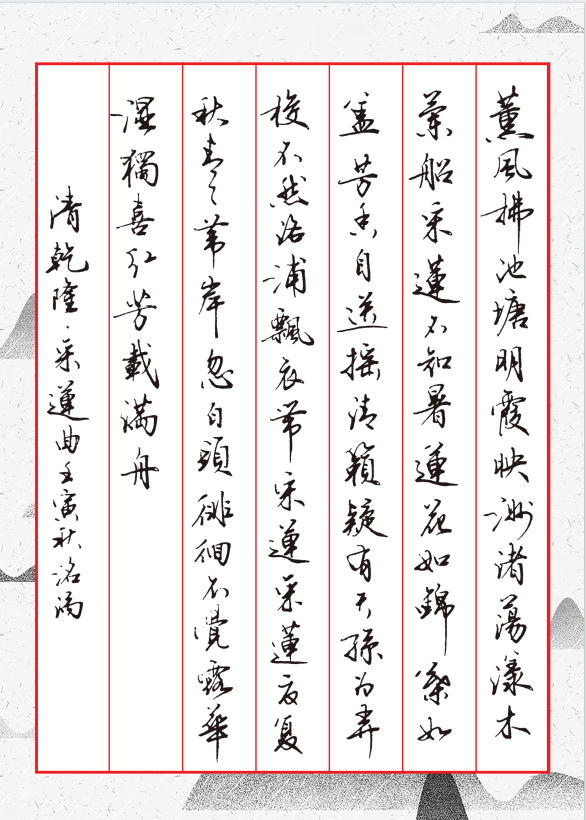 薰風拂池塘明霞映洲渚蕩漾木
蘭船采蓮不知暑蓮花如錦葉如
蓋芳香自送搖清籟疑有天孫為弄
梭不然洛浦飄衣帶采蓮采蓮度夏
秋青々葦岸忽白頭徘徊不覺露華
濕獨喜紅芳載滿舟
清乾隆·采蓮曲壬寅秋洺滿